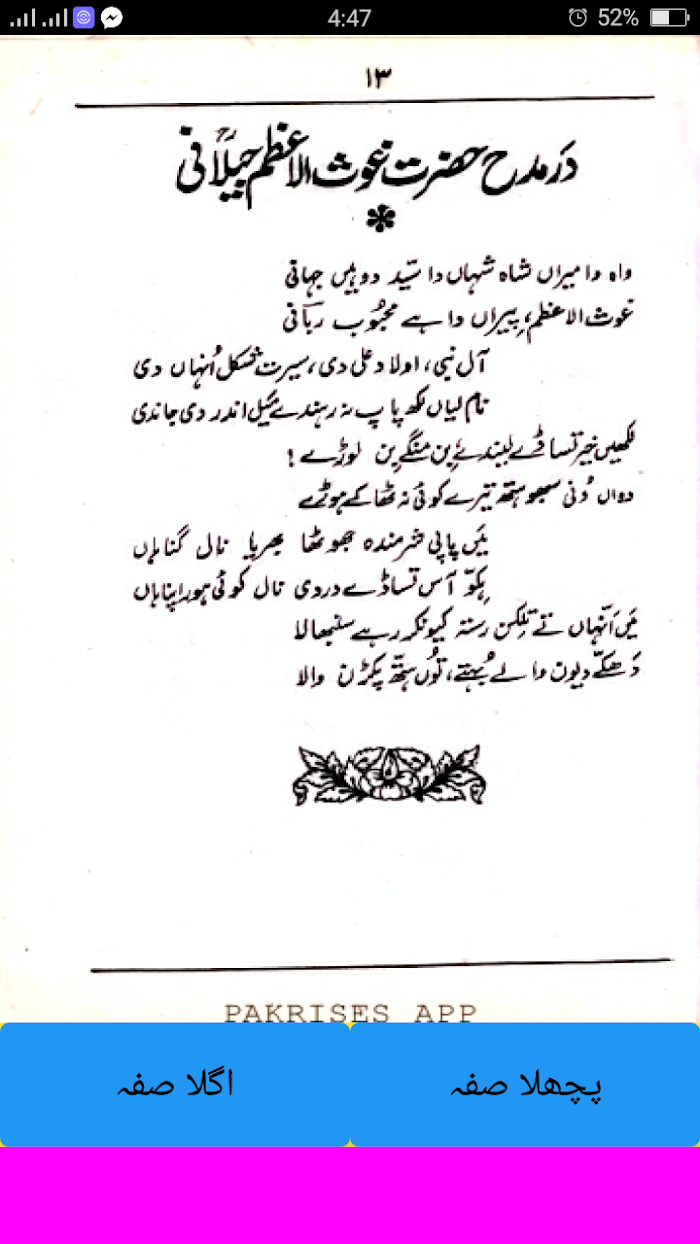 4:47
52%
۱۳
در مدح حضرت غوث الاعظم جیلانیؒ
واہ وا میراں شاہ شہاں دا سیّد دوہیں جہانی
غوث الاعظم، پیراں دا ہے محبُوب ربّانی
آل نبی، اولاد علی دی، سیرت شکل اُنہاں دی
نام لیاں لکھ پاپ نہ رہندے مَیل اندر دی جاندی
لکھیں خیر تساڈے لیندے بِن منگے بِن لوڑے!
دوہاں کُونی سبھو ہتھ تیرے کوئی نہ ٹھاکے ہوڑے
مَیں پاپی شرمندہ جھوٹھا بھریا نال گناہاں
ہِکّو آس تساڈے در دی نال کوئی ہور پناہاں
مَیں اَنّہاں تے تِلکن رستہ کیونکر رہے سنبھالا
دَھکّے دیون والے بُہتے، تُوں ہتھ پکڑن والا
PAKRISES APP
پچھلا صفہ
اگلا صفہ